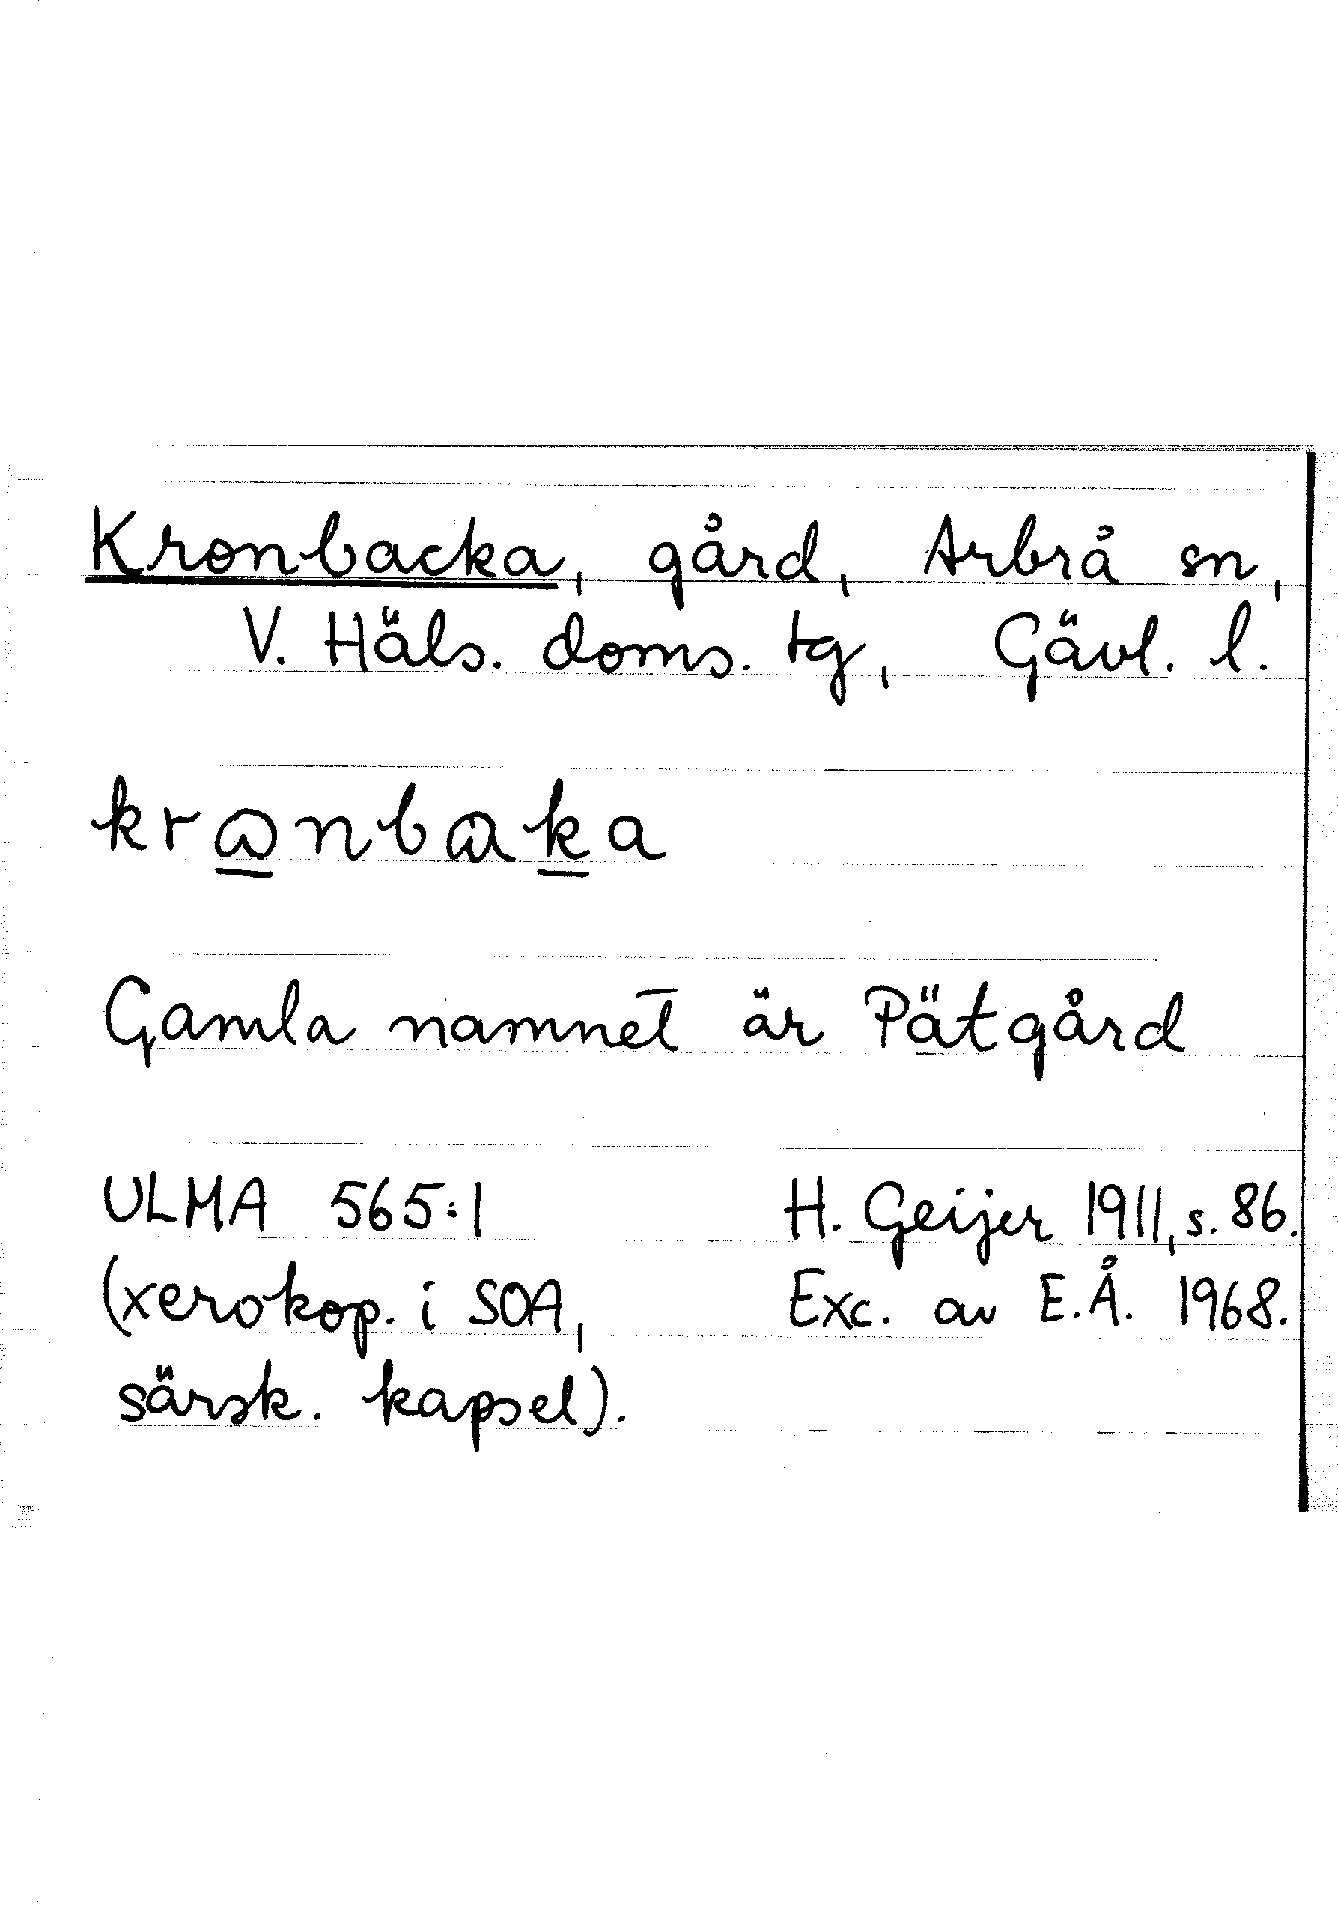 Kronbacka, gård, Arbrå sn,
V. Häls. doms. tg, Gävl. l.
krωnbaka
Gamla namnet är Pätgård
ULMA 565:1 H. Geijer 1911, s. 86.
(xerokop. i SOA, Exc. av E.Å. 1968.
särsk. kapsel).